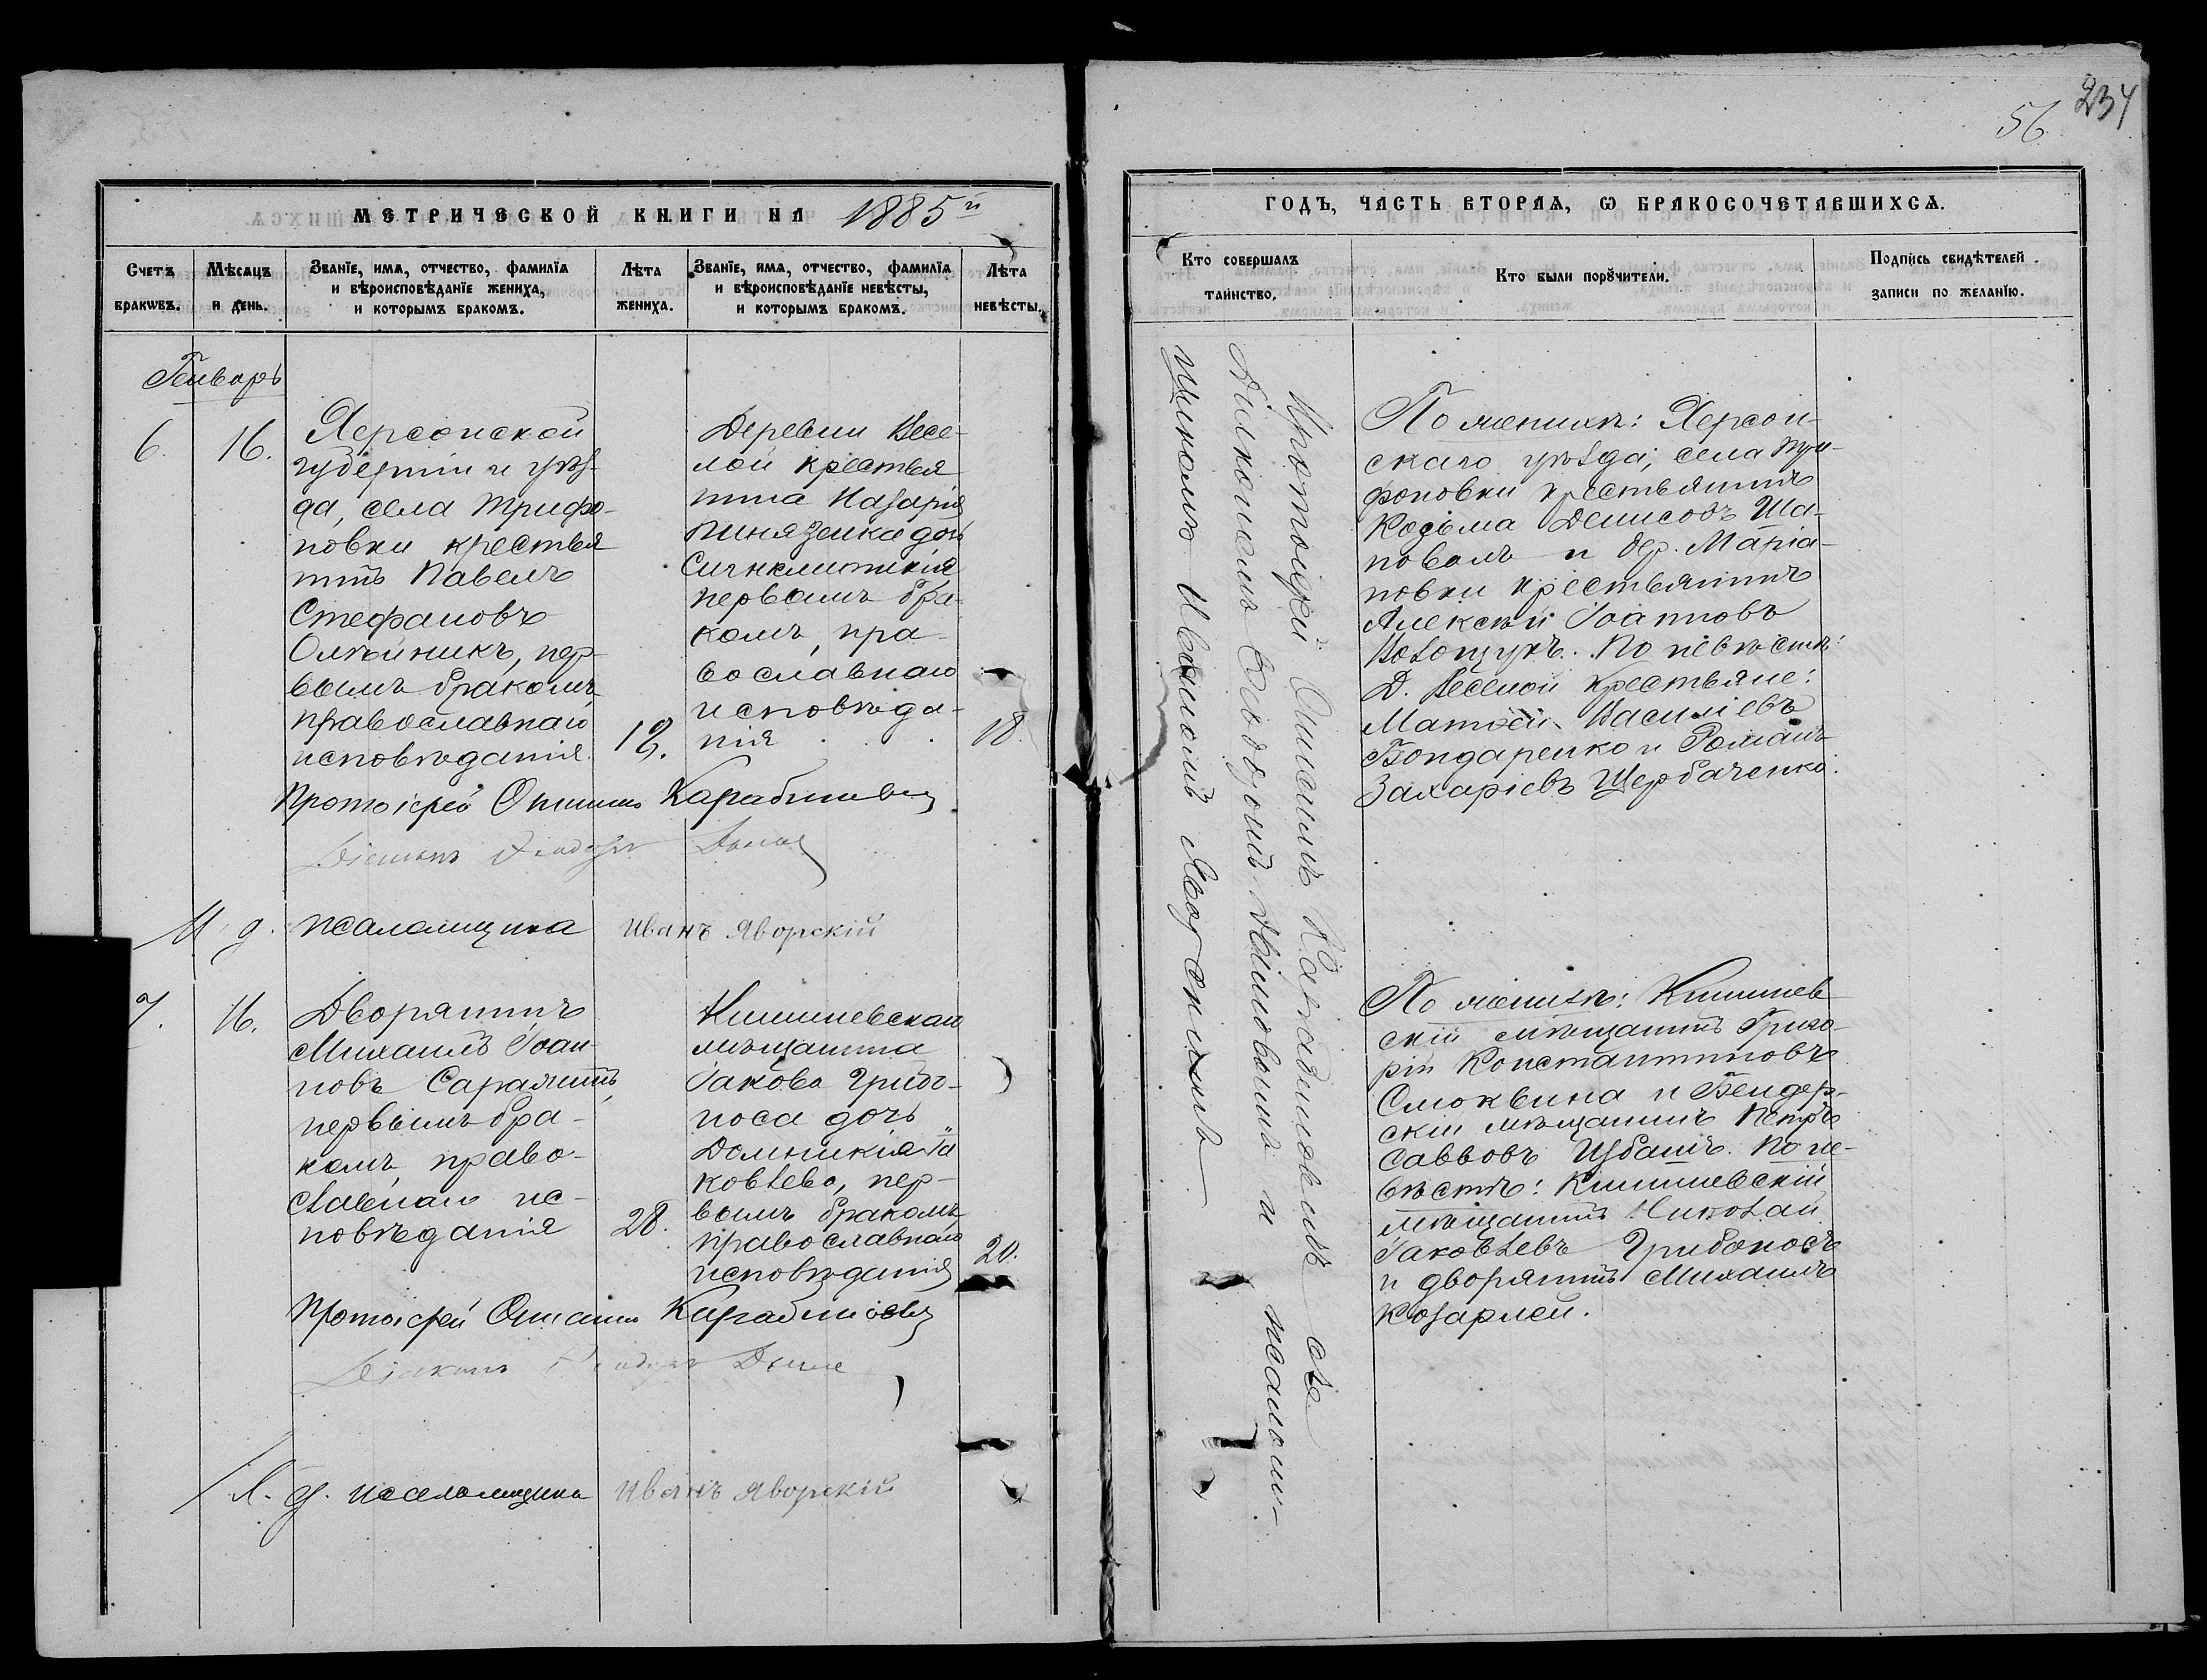 МЕТРИЧЕСКОЙ КНИГИ НА 1885й
Счетъ браковъ.
Мѣсяцъ и день.
Званїе, имя, отчество, фамилїя и вѣроисповѣданїе жениха, и которымъ бракомъ.
Лѣта жениха.
Званїе, имя, отчество, фамилїя и вѣроисповѣданїе невѣсты, и которымъ бракомъ.
Лѣта невѣсты.
Генварь
6.
16.
Херсонской
губерніи и уѣз-
да, села Трифо-
новки крестья
нинъ Павелъ
Стефановъ
Олѣйникъ, пер-
вымъ бракомъ,
православнаго
исповѣданія.
19.
Деревни Весе-
лой крестья
нина Назарія
Пинязенка дочь
Синклитикія
первымъ бра-
комъ, пра-
вославнаго
исповѣда-
нія . . .
18.
Протоіерей
Діаконъ Ѳеодоръ
И. д. псаломщика Иванъ Яворскій
7.
16.
Дворянинъ
Михаилъ Іоан-
новъ
первымъ бра-
комъ, право-
славнаго ис-
повѣданія
28.
Кишиневскаго
мѣщанина
Іакова Грибо-
носа дочь
Домникія Іа
ковлева, пер-
вымъ бракомъ,
православнаго
исповѣданія
20.
Протоіерей
Діаконъ Ѳеодоръ
И. д. псаломщика Иванъ Яворскій
234
56
ГОДЪ, ЧАСТЬ ВТОРАЯ, Ѡ БРАКОСОЧЕТАВШИХСЯ.
Кто совершалъ таинство.
Кто были порꙋчители.
Подпись свидѣтелей записи по желанїю.
Протоіерей
Діакономъ Ѳеодоромъ и псалом-
щикомъ Иваномъ Яворскимъ
По женихѣ: Херсон-
скаго уѣзда, села Три-
фоновки крестьянинъ
Козьма Денисовъ Ша-
повалъ и дер. Маріа-
новки крестьянинъ
Алексѣй Іоанновъ
По невѣстѣ:
Д. Веселой крестьяне:
Матѳей Василіевъ
Бондаренко и Романъ
Захаріевъ Щербаченко.
По женихѣ: Кишинев
скій мѣщанинъ Григо-
рій Константиновъ
Смоквина и Бендер-
скій мѣщанинъ Петръ
Саввовъ По не-
вѣстѣ: Кишиневскій
мѣщанинъ Николай
Іаковлевъ Грибоносъ
и дворянинъ Михаилъ